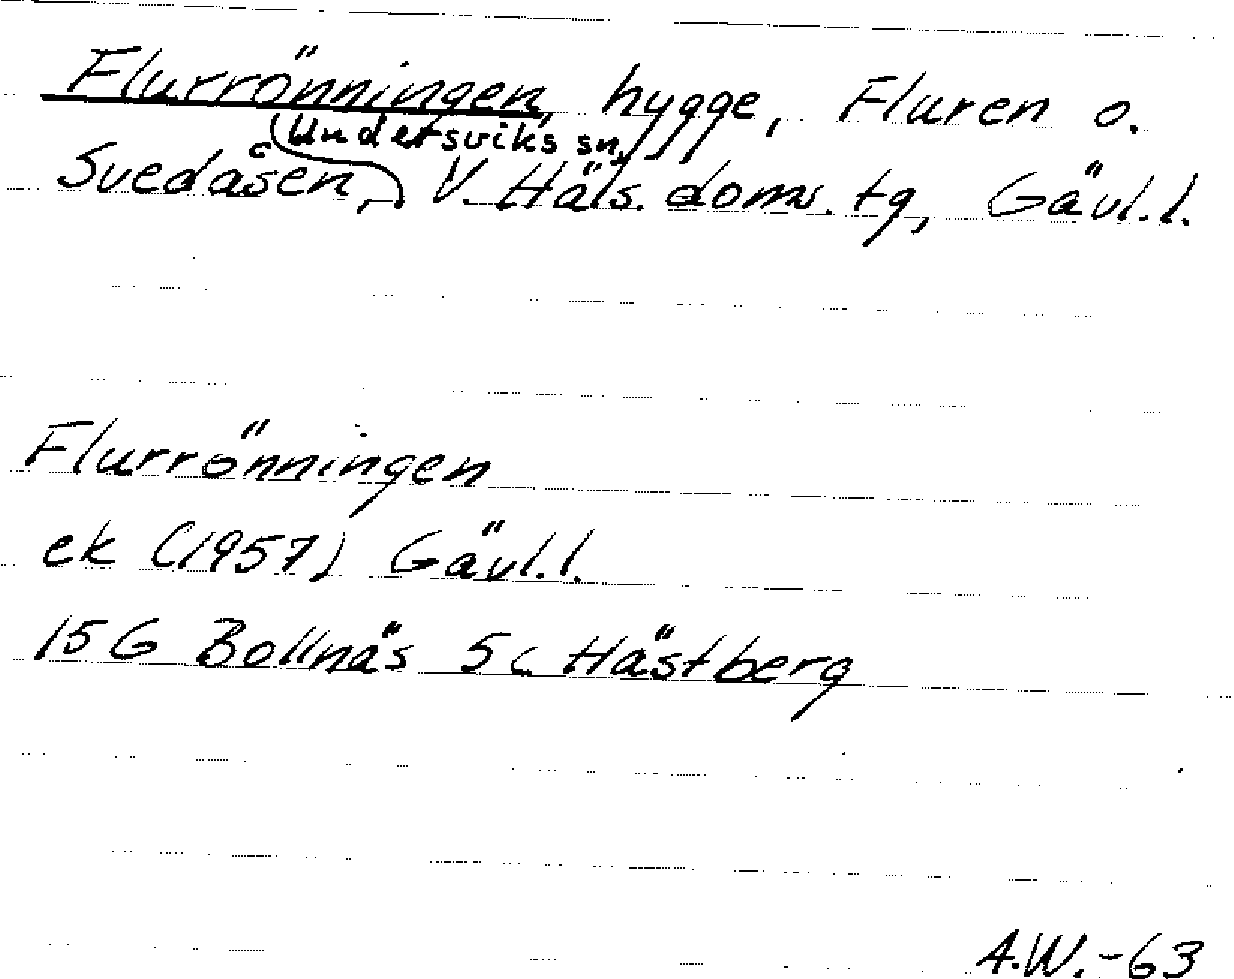 Flurrönningen, hygge, Fluren o.
Undersviks sn,
Svedåsen, V. Häls. doms. tg, Gävl.l.
Flurrönningen
ek (1957) Gävl.l.
15G Bollnäs 5c Hästberg
A.W.-63